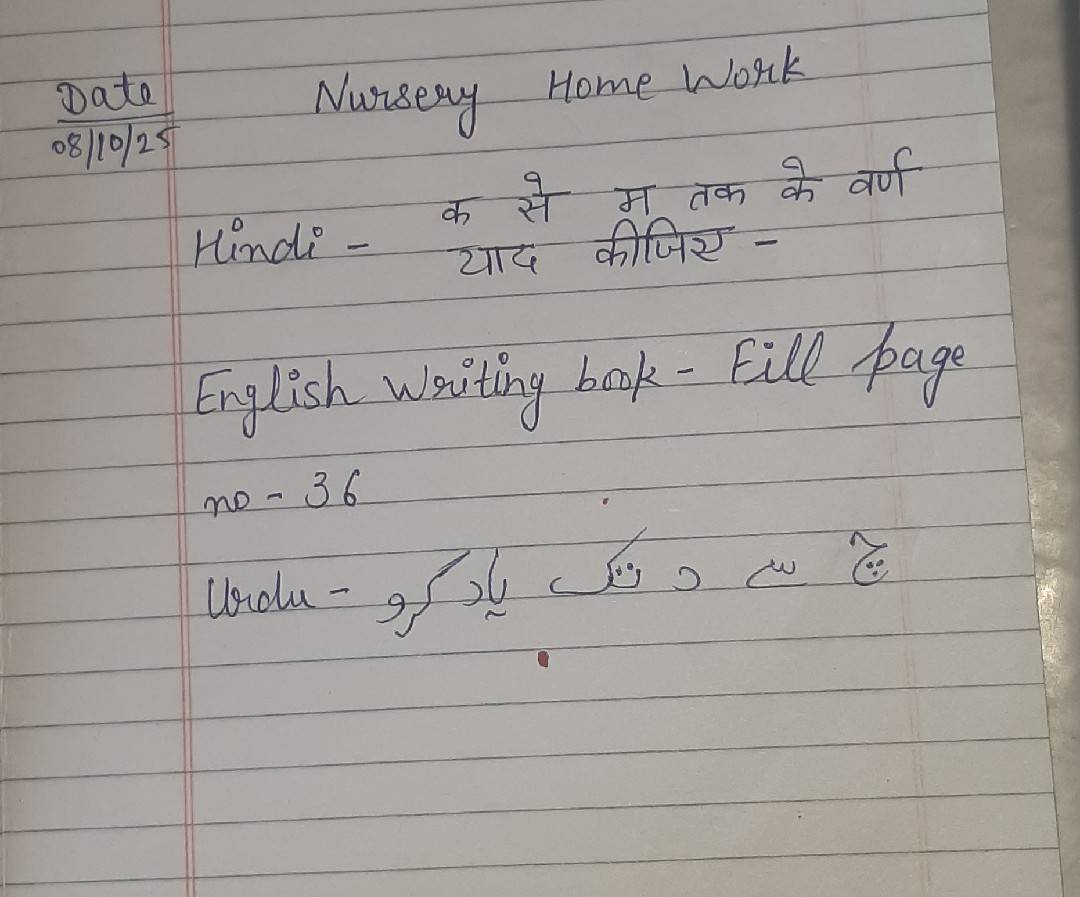 Date
08/10/25
Nursery Home Work
Hindi - क से म तक के वर्ण
याद कीजिए -
English Writing book - Fill page
no - 36
Urdu - چ سے د تک یاد کرو